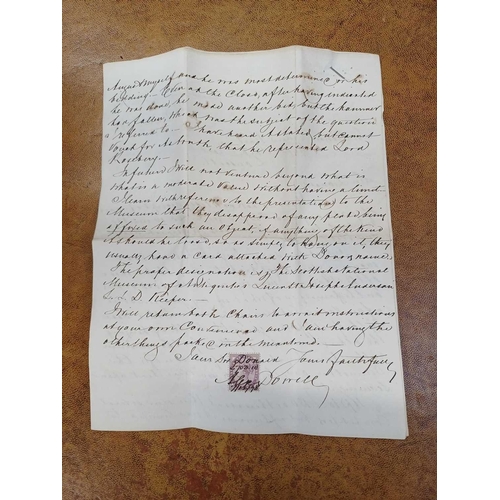 Angus & myself and he was most determined in his
bidding. Even at the Close, after having indicated
he was done, he made another bid, but the hammer
had fallen, which was the subject of the question
I referred to. I have heard it stated, but cannot
vouch for its truth, that he represented Lord
Rosebery.
In future I will not venture beyond what is
what is a moderate value without having a limit.
I learn with reference to the presentation to the
Museum that they disapprove of any plate being
affixed to such an object, if anything of the kind
it should be loose, so as simply to hang on it, they
usually have a Card attached with Donors name.
The proper designation is The Scottish National
Museum of Antiquities Joseph Anderson
L.L.D. Keeper.
I will retain both Chairs to await instructions
at your own Convenience and am having the
other things packed in the meantime.
I am Sir Donald Yours faithfully
Alex Dowell